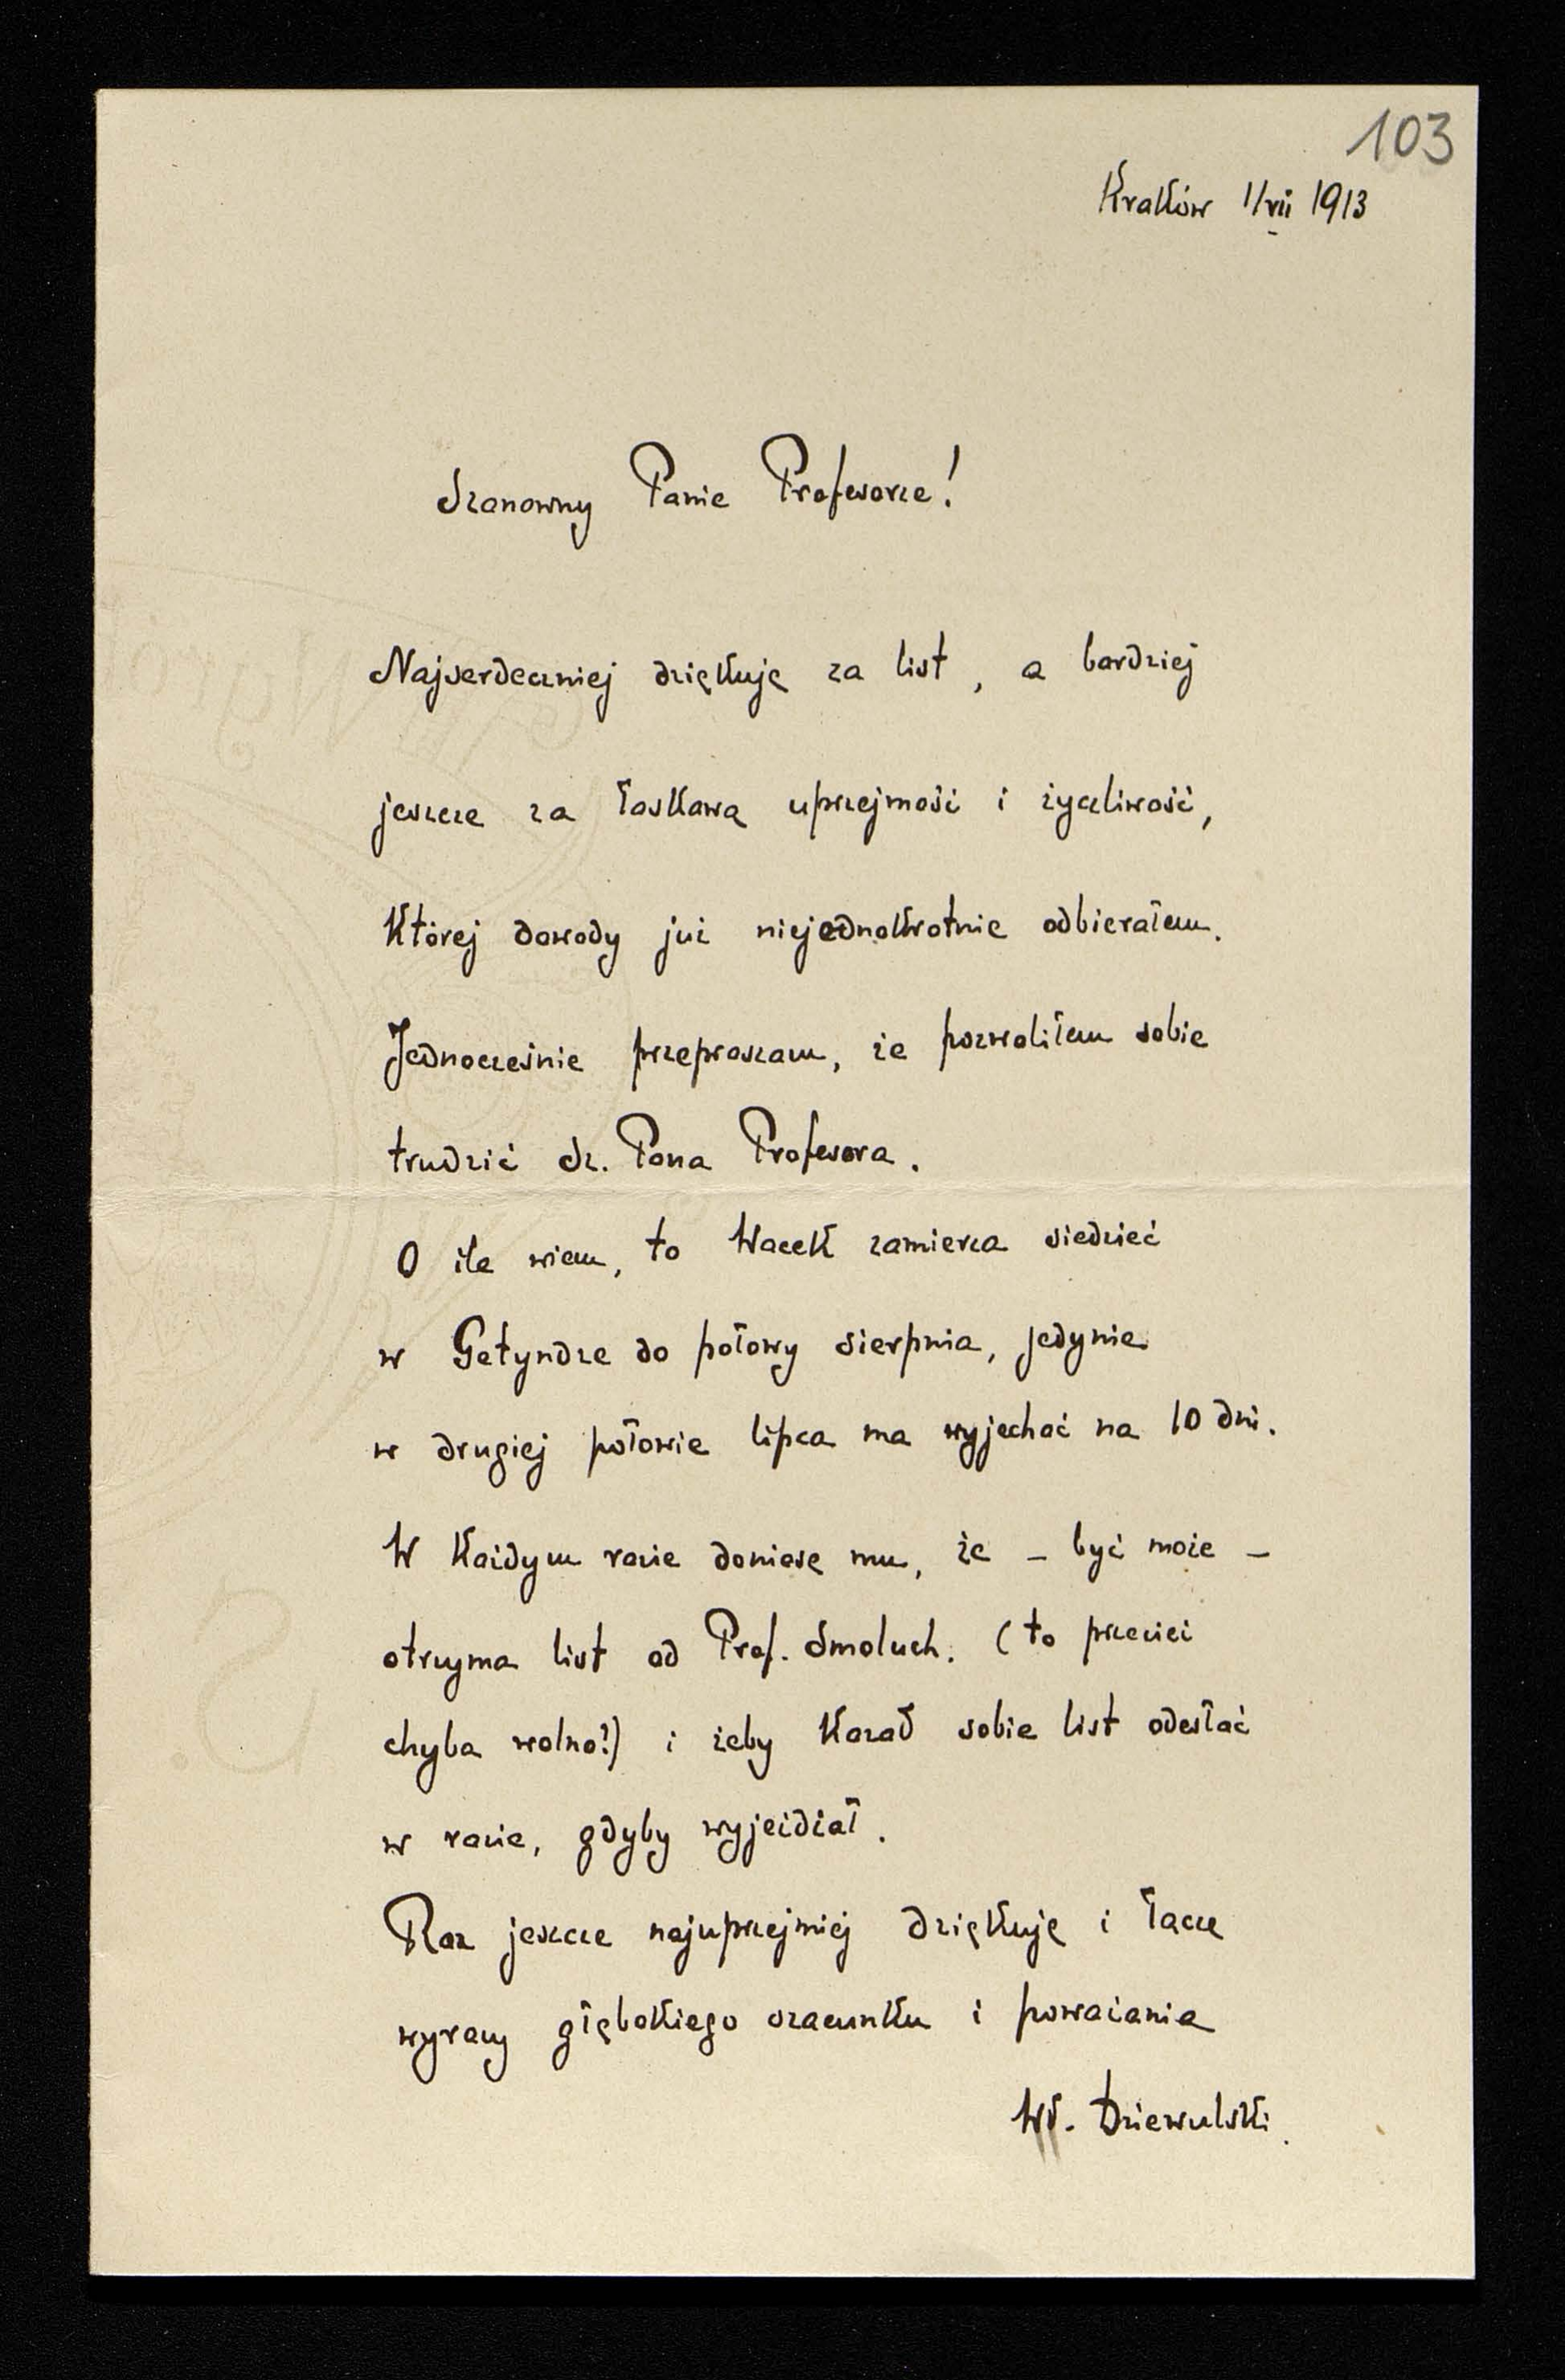 103
Kraków 1/VII 1913
Szanowny Panie Profesorze!
Najserdeczniej dziękuję za list, a bardziej
jeszcze za łaskawą uprzejmość i życzliwość,
której dowody już niejednokrotnie odbierałem.
Jednocześnie przepraszam, że pozwoliłem sobie
trudzić Sz. Pana Profesora.
O ile wiem, to Wacek zamierza siedzieć
w Getyndze do połowy sierpnia, jedynie
w drugiej połowie lipca ma wyjechać na 10 dni.
W każdym razie doniosę mu, że – być może –
otrzyma list od Prof. Smoluch. (to przecież
chyba wolno?) i żeby kazał sobie list odesłać
w razie, gdyby wyjeżdżał.
Raz jeszcze najuprzejmiej dziękuję i łączę
wyrazy głębokiego szacunku i poważania
Wł. Dziewulski